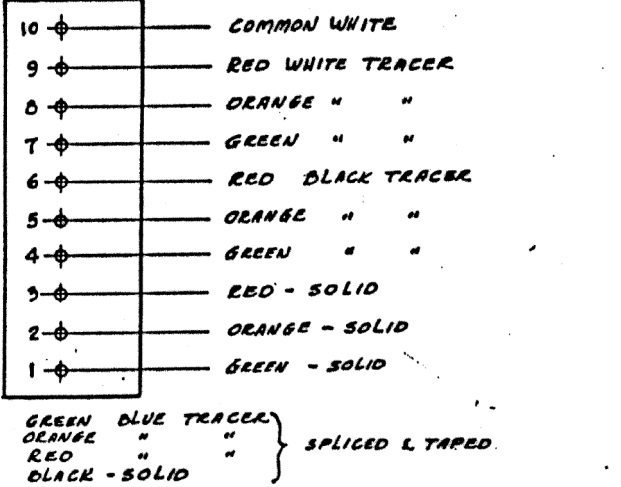 10 COMMON WHITE
9 RED WHITE TRACER
8 ORANGE " "
7 GREEN " "
6 RED BLACK TRACER
5 ORANGE " "
4 GREEN " "
3 RED - SOLID
2 ORANGE - SOLID
1 GREEN - SOLID
GREEN BLUE TRACER
ORANGE " "
RED " "
BLACK - SOLID
SPLICED & TAPED